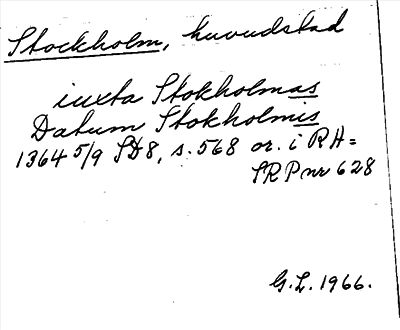 Stockholm, huvudstad
iuxta Stokholmas
Datum Stokholmis
1364 5/9 SD8, s. 568 or. i RA =
SRP nr 628
G.L. 1966.